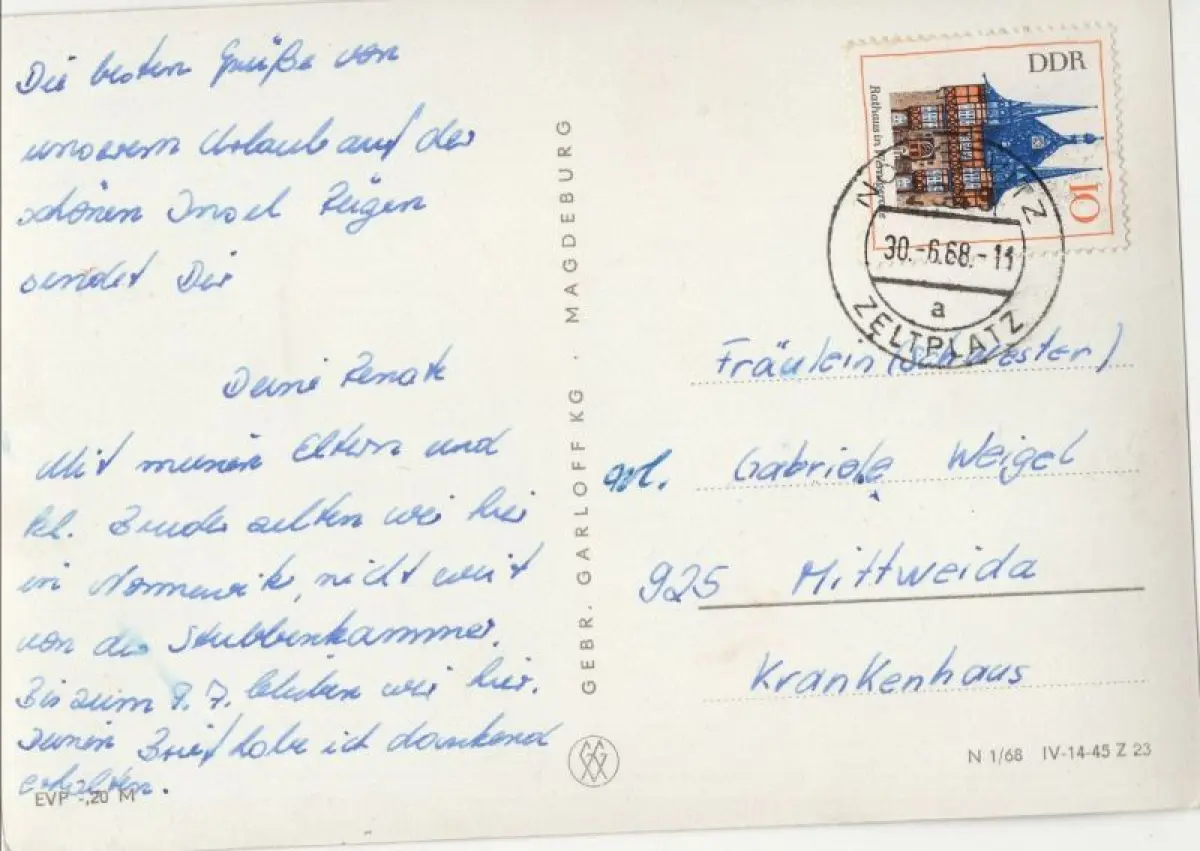 Die besten Grüße von
unserem Urlaub auf der
schönen Insel Rügen
sendet Dir
Deine Renate
Mit meinen Eltern und
kl. Bruder zelten wir hier
in Nonnewik, nicht weit
von der Stubbenkammer.
Bis zum 8.7. bleiben wir hier.
Deinen Brief habe ich dankend
erhalten.
EVP -,20 M
GEBR. GARLOFF KG · MAGDEBURG
DDR
Rathaus in Wernigerode
10
30.-6.68.-11
a
ZELTPLATZ
Fräulein (Schwester)
Gabriele Weigel
925 Mittweida
Krankenhaus
N 1/68 IV-14-45 Z 23